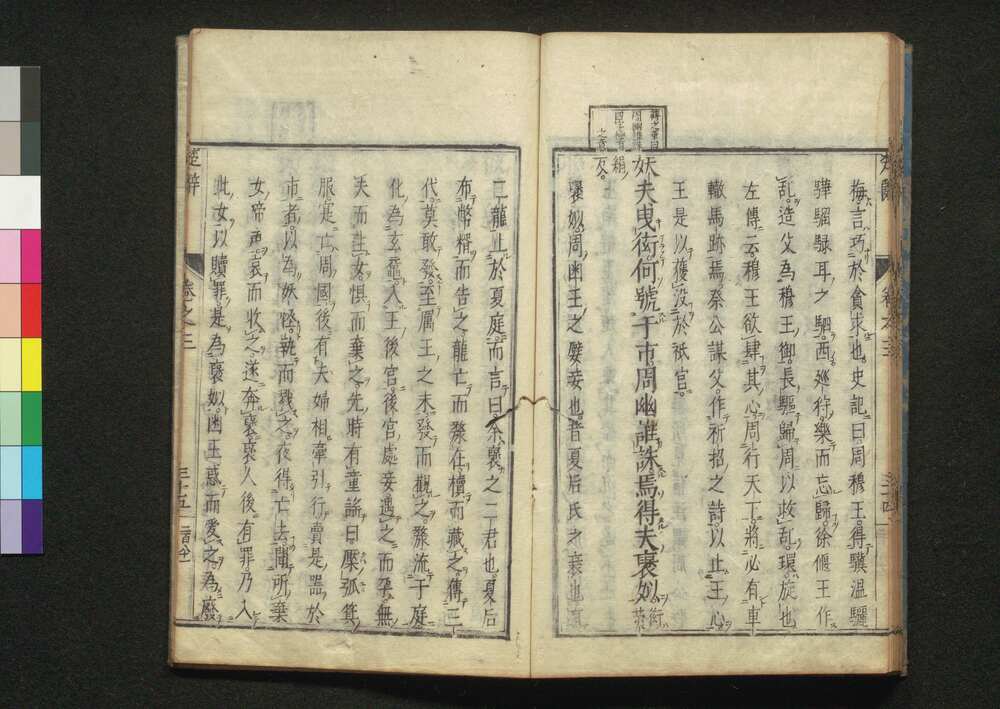 楚辭
卷之三
三十四
梅言巧於貪求也史記曰周穆王得驥温驪
驊騮騄耳之駟西廵狩樂而忘歸徐偃王作
乱造父為穆王御長驅歸周以救乱環旋也
左傳云穆王欲肆其心周行天下將必有車
轍馬跡焉祭公謀父作祈招之詩以止王心
王是以獲没於祇宮
妖夫曳衒何號于市周幽誰誅焉得夫褒姒
褒姒周幽王之嬖妾也昔夏后氏之衰也
二龍止於夏庭而言曰余褒之二君也夏后
布幣糈而告之龍亡而漦在櫝而藏之傳三
代莫敢發至厲王之末發而觀之漦流于庭
化為玄黿入王後宮後宮處妾遇之而孕無
夫而生女惧而棄之先時有童謠曰檿弧箕
服寔亡周國後有夫婦相牽引行賣是器於
市者以為妖怪執而戮之夜得亡去聞所棄
女啼声哀而收之遂奔褒褒人後有罪乃入
此女以贖罪是為褒姒幽王惑而愛之為廢
楚辭
卷之三
三十五